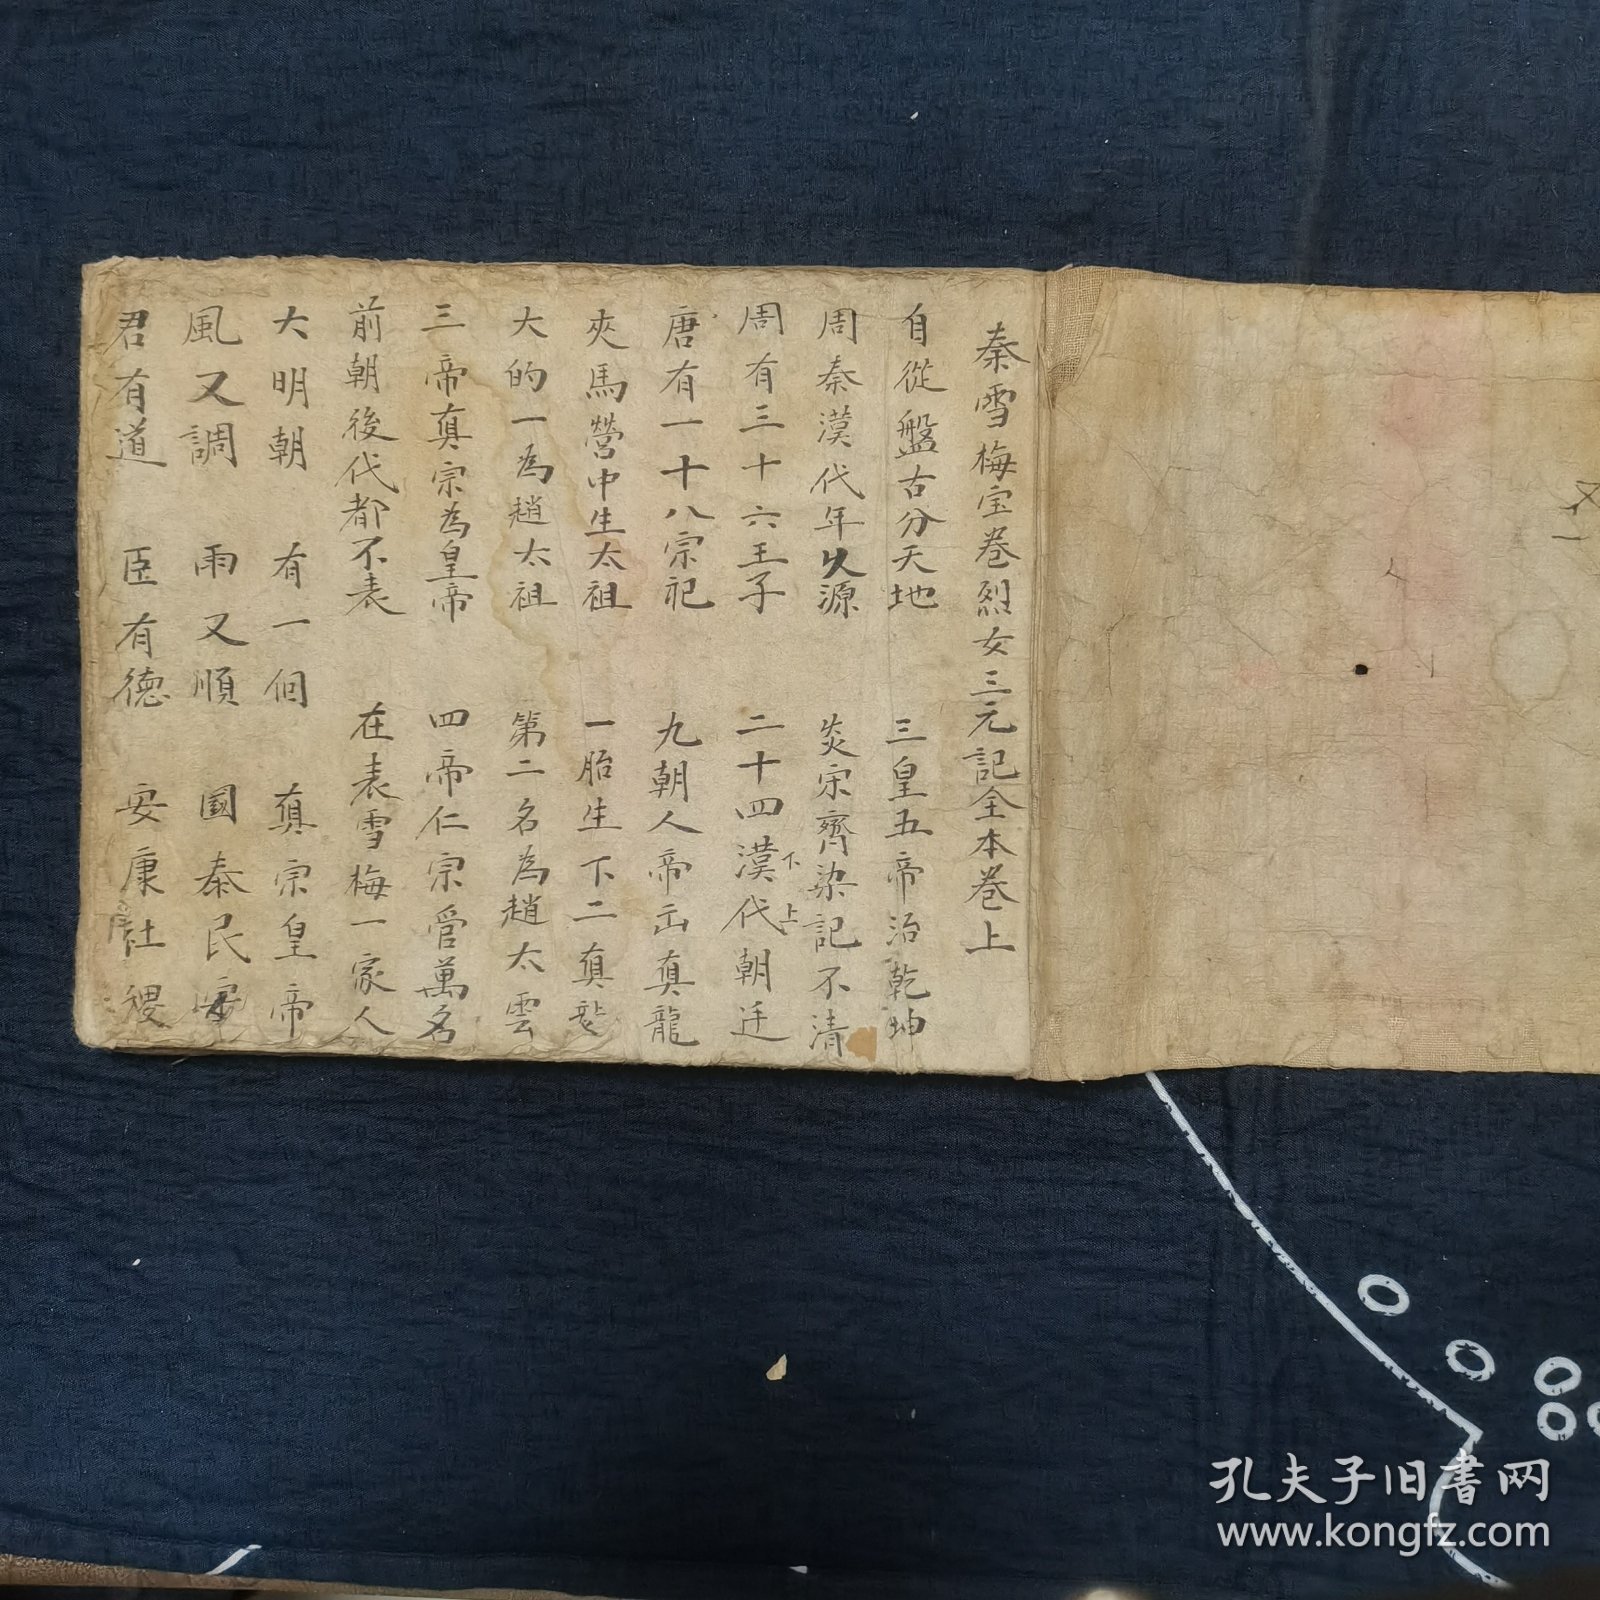 秦雪梅宝卷烈女三元記全本卷上
自從盤古分天地 三皇五帝治乾坤
周秦漢代年久源 炎宋齊梁記不清
周有三十六王子 二十四漢代朝廷
下上
唐有一十八宗祀 九朝人帝出真龍
夾馬營中生太祖 一胎生下二真
大的一為趙太祖 第二名為趙太雲
三帝真宗為皇帝 四帝仁宗管萬名
前朝後代都不表 在表雪梅一家人
大明朝 有一個 真宗皇帝
風又調 雨又順 國泰民安
君有道 臣有德 安康社稷
孔夫子旧書网
www.kongfz.com